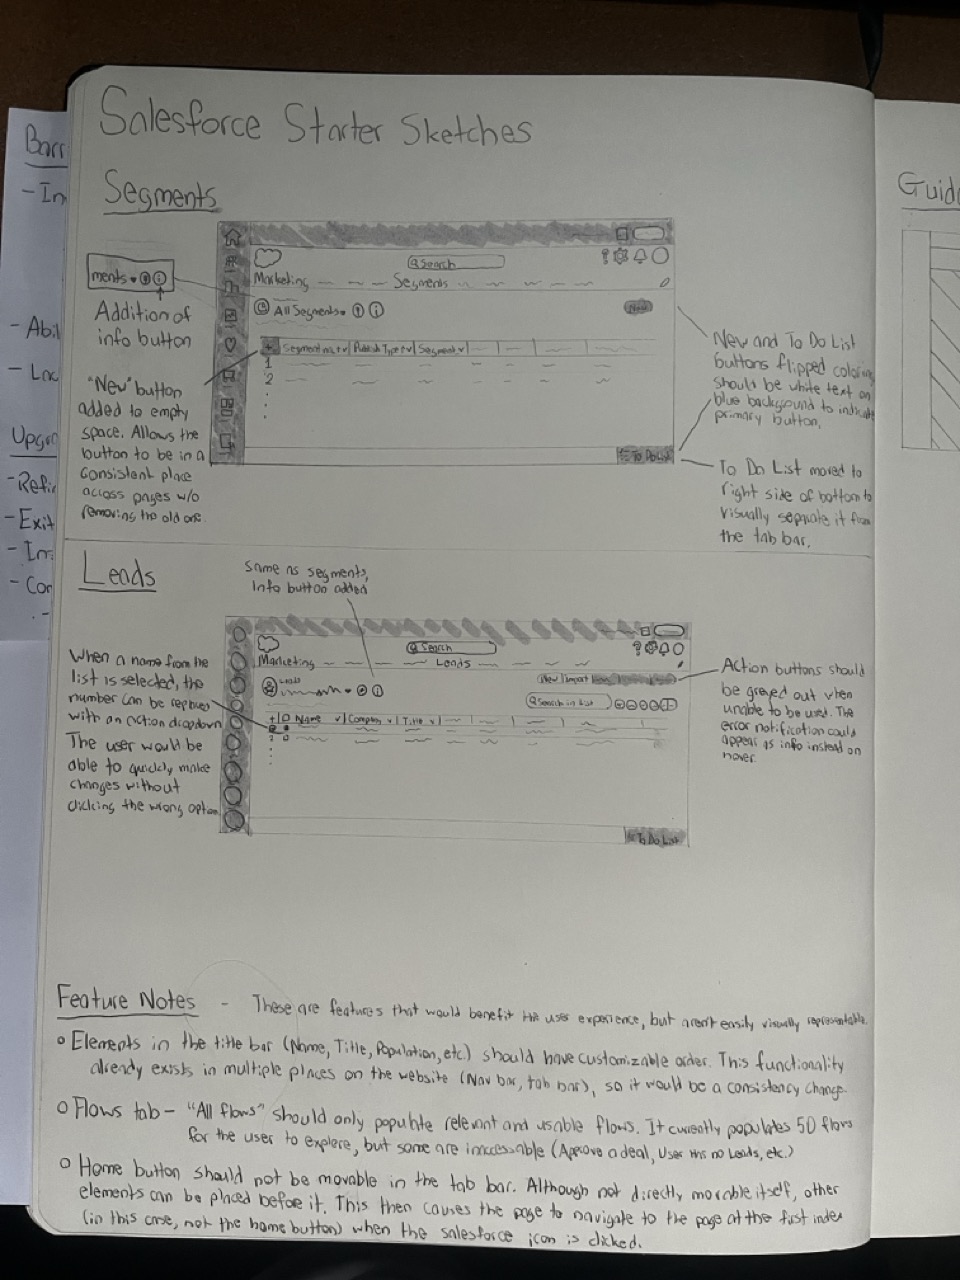 Salesforce Starter Sketches
Segments
Search
Marketing
Segments
All Segments
New
Publish Type
Segment
1
2
To Do List
ments
Addition of
info button
"New" button
added to empty
space. Allows the
button to be in a
consistent place
across pages w/o
removing the old one.
New and To Do List
buttons flipped coloring
should be white text on
blue background to indicate
primary button.
To Do List moved to
right side of bottom to
visually separate it from
the tab bar.
Leads
Same as segments,
info button added
Search
Marketing
Leads
Leads
New Import
Search in List
Name
Company
Title
To Do List
When a name from the
list is selected, the
number can be replaced
with an action dropdown
The user would be
able to quickly make
changes without
clicking the wrong option
Action buttons should
be greyed out when
unable to be used. The
error notification could
appear as info instead on
hover.
Feature Notes - These are features that would benefit the user experience, but aren't easily visually representable.
o Elements in the title bar (Name, Title, Population, etc.) should have customizable order. This functionality
already exists in multiple places on the website (Nav bar, tab bar), so it would be a consistency change.
o Flows tab - "All flows" should only populate relevant and usable flows. It currently populates 50 flows
for the user to explore, but some are (Approve a deal, User has no Leads, etc.)
o Home button should not be movable in the tab bar. Although not directly movable itself, other
elements can be placed before it. This then causes the page to navigate to the page at the first index
(in this case, not the home button) when the salesforce icon is clicked.
Barr
- In
- Abil
- Lac
Upgra
- Refin
- Exit
- Im
- Con
Guide